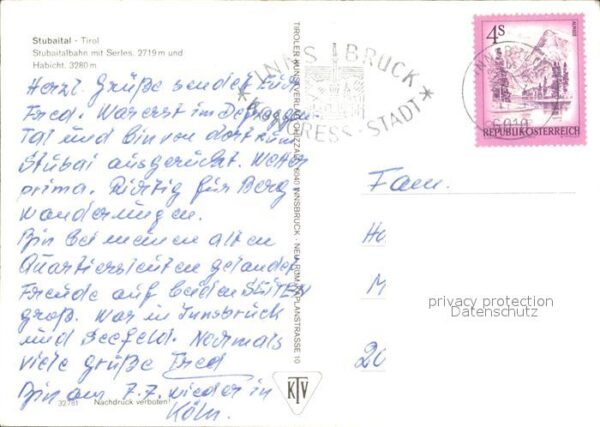 Stubaital - Tirol
Stubaitalbahn mit Serles, 2719 m und
Habicht, 3280 m
Herzl. Grüße sendet Euch
Fred. War erst im
Tal und bin von dort zum
Stubai ausgerückt. Wetter
prima. Richtig für Berg
wanderungen.
Bin bei meinen alten
Quartiersleuten gelandet
Freude auf beiden SEITEN
groß. War in Innsbruck
und Seefeld. Nochmals
viele Grüße Fred
Bin am 7.7. wieder in
Köln.
32781 Nachdruck verboten!
TIROLER KUNSTVERLAG CHIZZALI 6040 INNSBRUCK - NEU-RUM KAPLANSTRASSE 10
KTV
INNSBRUCK
KONGRESS-STADT
4S
REPUBLIK ÖSTERREICH
6010
Fam.
Ho
M
20
privacy protection
Datenschutz